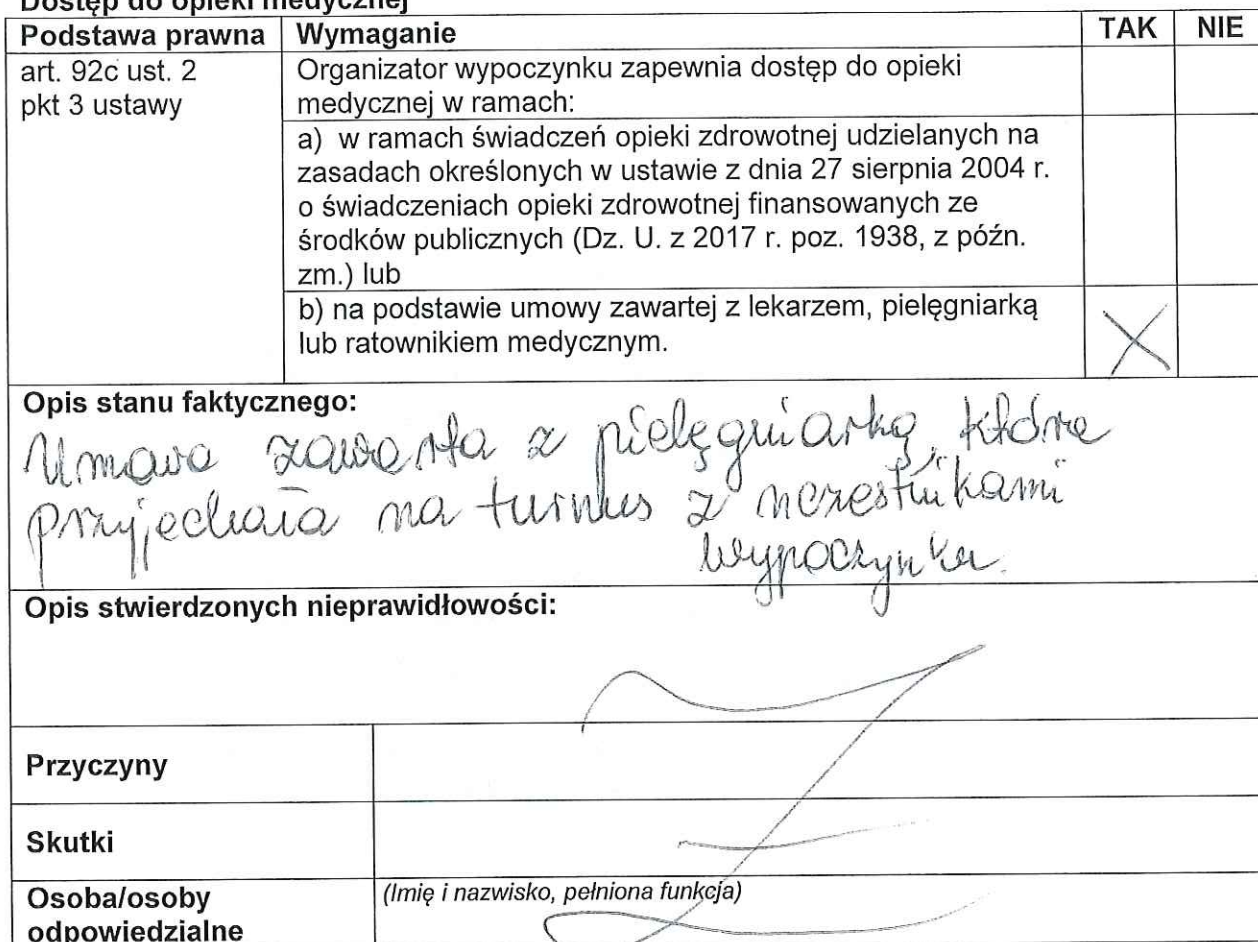 Dostęp do opieki medycznej
Podstawa prawna Wymaganie TAK NIE
art. 92c ust. 2
pkt 3 ustawy
Organizator wypoczynku zapewnia dostęp do opieki
medycznej w ramach:
a) w ramach świadczeń opieki zdrowotnej udzielanych na
zasadach określonych w ustawie z dnia 27 sierpnia 2004 r.
o świadczeniach opieki zdrowotnej finansowanych ze
środków publicznych (Dz. U. z 2017 r. poz. 1938, z późn.
zm.) lub
b) na podstawie umowy zawartej z lekarzem, pielęgniarką
lub ratownikiem medycznym.
X
Opis stanu faktycznego:
Umowa zawarta z pielęgniarką, która
przyjechała na turnus z uczestnikami
wypoczynku.
Opis stwierdzonych nieprawidłowości:
Przyczyny
Skutki
Osoba/osoby
odpowiedzialne
(Imię i nazwisko, pełniona funkcja)